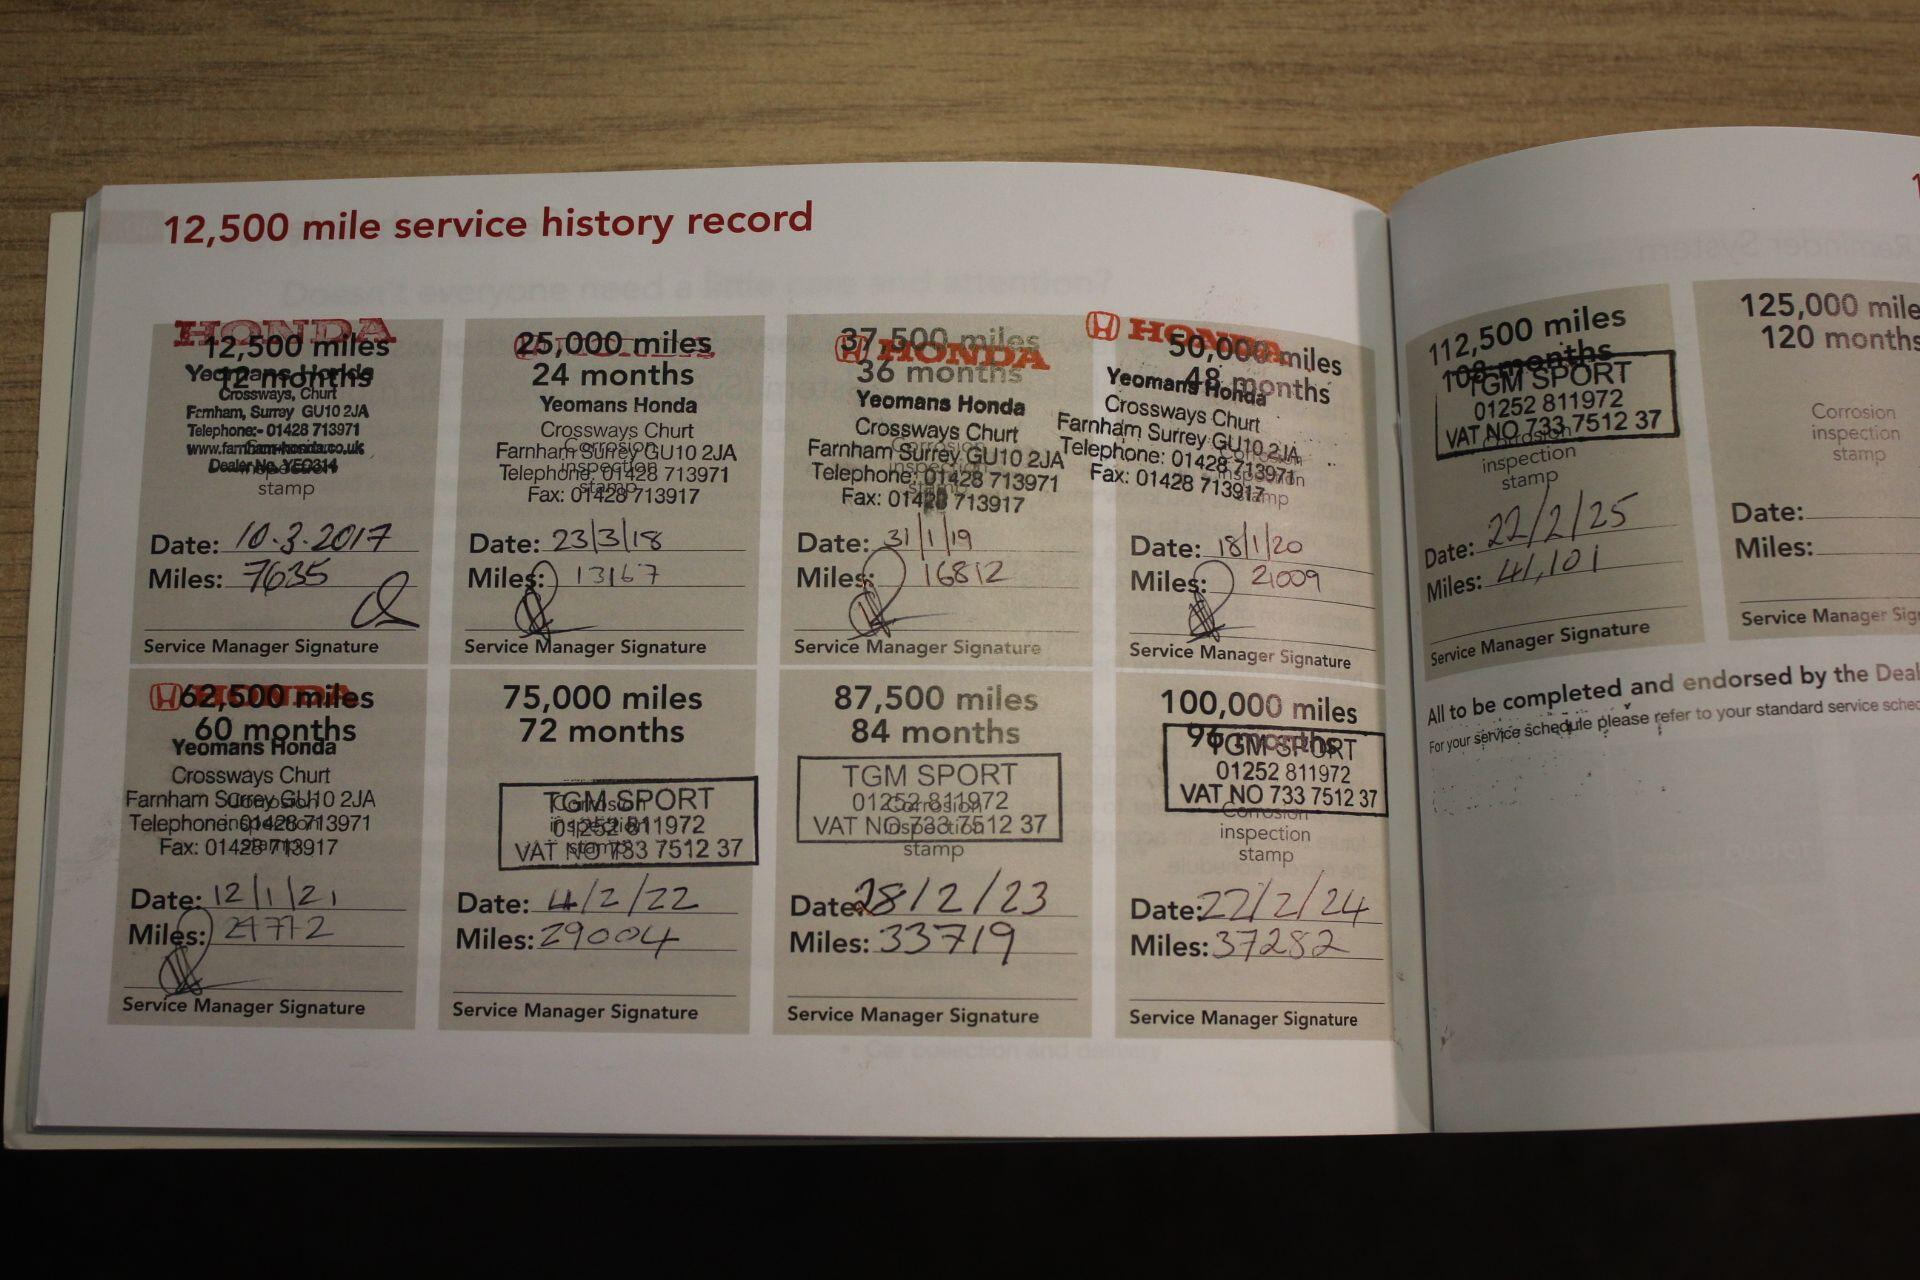 12,500 mile service history record
HONDA
12,500 miles
12 months
Yeomans Honda
Crossways, Churt
Farnham, Surrey GU10 2JA
Telephone:- 01428 713971
www.farnham-honda.co.uk
Dealer No. YEO314
Corrosion
inspection
stamp
Date: 10.3.2017
Miles: 7635
Service Manager Signature
25,000 miles
24 months
Yeomans Honda
Crossways Churt
Farnham Surrey GU10 2JA
Telephone: 01428 713971
Fax: 01428 713917
Corrosion
inspection
stamp
Date: 23/3/18
Miles: 13167
Service Manager Signature
37,500 miles
HONDA
36 months
Yeomans Honda
Crossways Churt
Farnham Surrey GU10 2JA
Telephone: 01428 713971
Fax: 01428 713917
Corrosion
inspection
stamp
Date: 31/1/19
Miles: 16812
Service Manager Signature
HONDA
50,000 miles
48 months
Yeomans Honda
Crossways Churt
Farnham Surrey GU10 2JA
Telephone: 01428 713971
Fax: 01428 713917
Corrosion
inspection
stamp
Date: 18/1/20
Miles: 21009
Service Manager Signature
HONDA
62,500 miles
60 months
Yeomans Honda
Crossways Churt
Farnham Surrey GU10 2JA
Telephone: 01428 713971
Fax: 01428 713917
Corrosion
inspection
stamp
Date: 12/1/21
Miles:
Service Manager Signature
75,000 miles
72 months
TGM SPORT
01252 811972
VAT NO 733 7512 37
Corrosion
inspection
stamp
Date: 4/2/22
Miles: 29004
Service Manager Signature
87,500 miles
84 months
TGM SPORT
01252 811972
VAT NO 733 7512 37
Corrosion
inspection
stamp
Date: 28/2/23
Miles: 33719
Service Manager Signature
100,000 miles
96 months
TGM SPORT
01252 811972
VAT NO 733 7512 37
Corrosion
inspection
stamp
Date: 22/2/24
Miles: 37282
Service Manager Signature
112,500 miles
108 months
TGM SPORT
01252 811972
VAT NO 733 7512 37
Corrosion
inspection
stamp
Date: 22/2/25
Miles: 41,101
Service Manager Signature
125,000 mile
120 months
Corrosion
inspection
stamp
Date:
Miles:
Service Manager Sig
All to be completed and endorsed by the Deal
For your service schedule please refer to your standard service sched